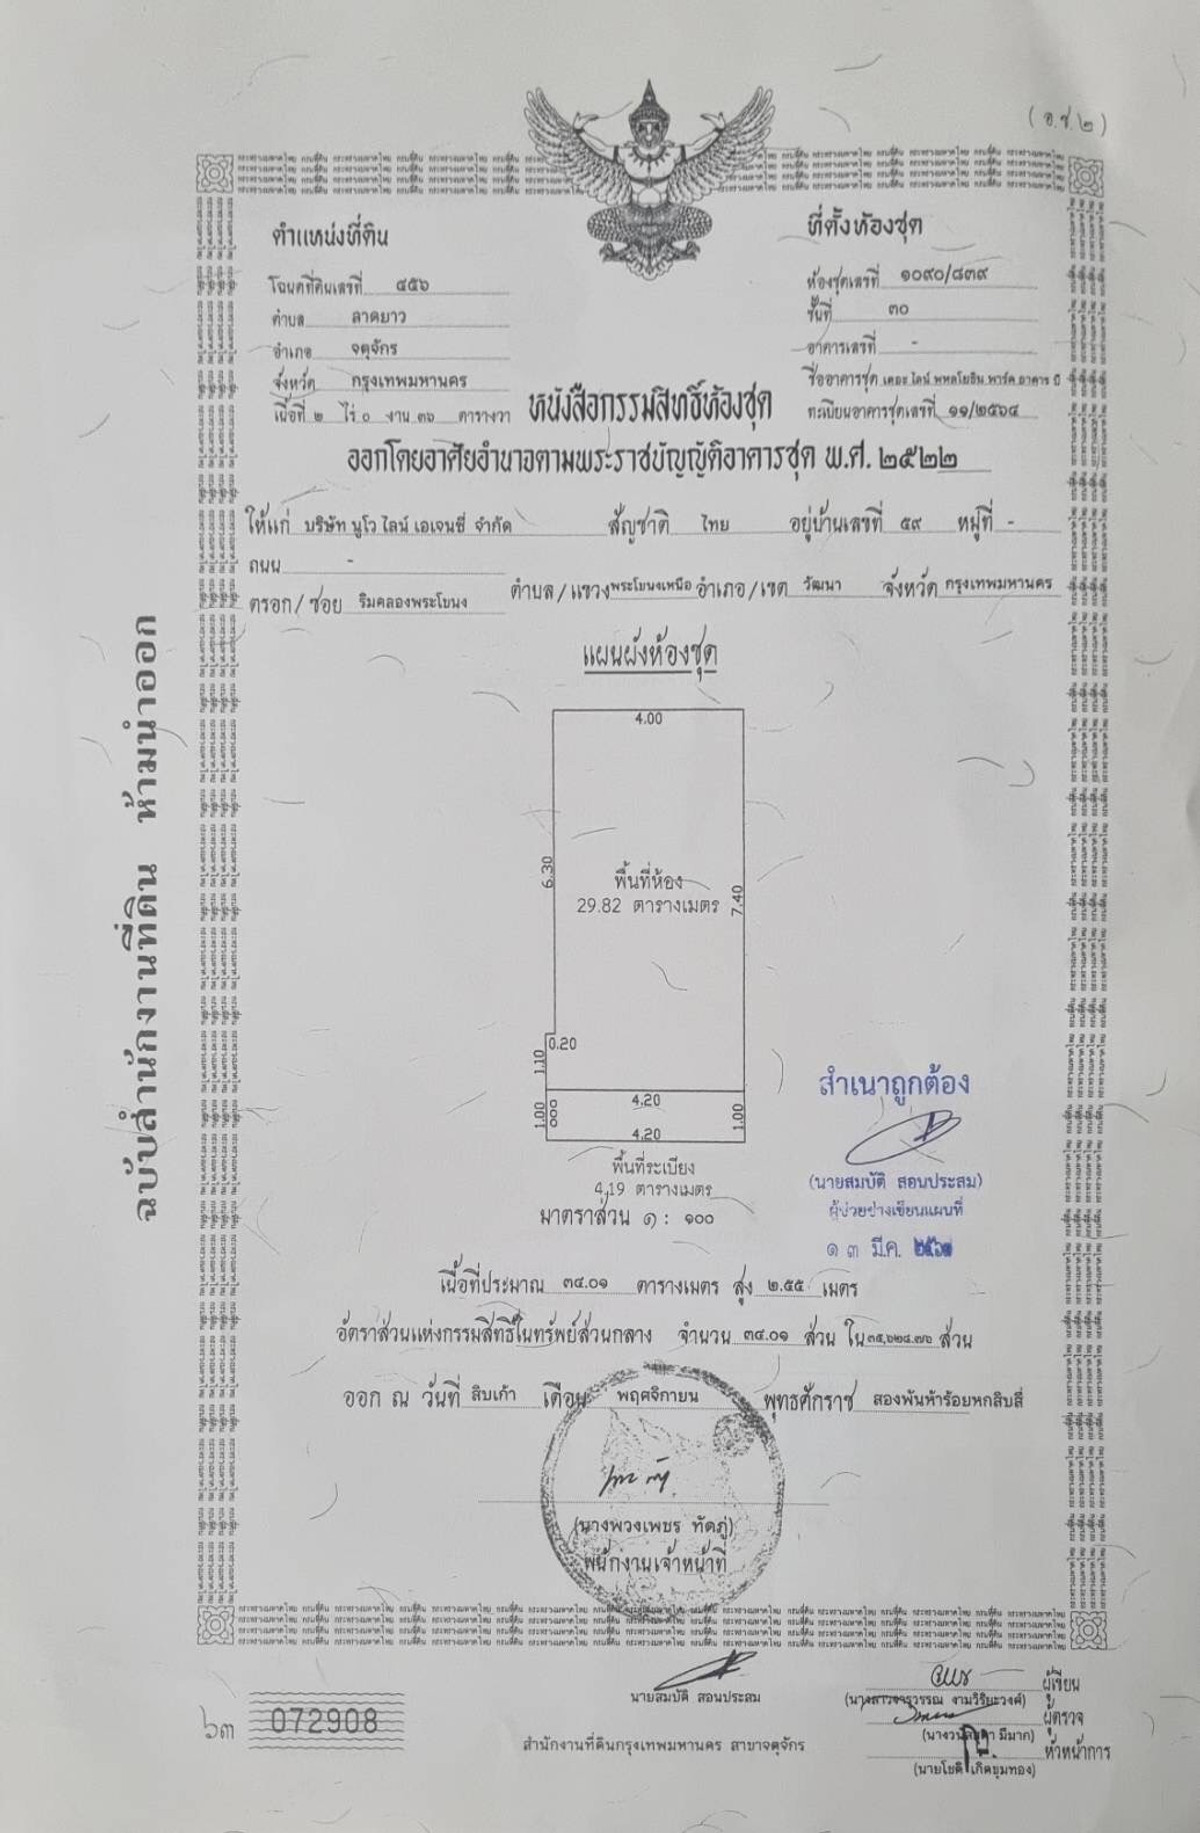 (อ.ช.๒)
ตำแหน่งที่ดิน
โฉนดที่ดินเลขที่ ๔๕๖
ตำบล ลาดยาว
อำเภอ จตุจักร
จังหวัด กรุงเทพมหานคร
เนื้อที่ ๒ ไร่ ๐ งาน ๓๖ ตารางวา
ที่ตั้งห้องชุด
ห้องชุดเลขที่ ๑๐๙๐/๘๓๙
ชั้นที่ ๓๐
อาคารเลขที่ -
ชื่ออาคารชุด เดอะ ไลน์ พหลโยธิน พาร์ค อาคาร บี
ทะเบียนอาคารชุดเลขที่ ๑๑/๒๕๖๔
หนังสือกรรมสิทธิ์ห้องชุด
ออกโดยอาศัยอำนาจตามพระราชบัญญัติอาคารชุด พ.ศ. ๒๕๒๒
ให้แก่ บริษัท นูโว ไลน์ เอเจนซี่ จำกัด สัญชาติ ไทย อยู่บ้านเลขที่ ๕๙ หมู่ที่ -
ถนน -
ตรอก/ซอย ริมคลองพระโขนง ตำบล/แขวง พระโขนงเหนือ อำเภอ/เขต วัฒนา จังหวัด กรุงเทพมหานคร
แผนผังห้องชุด
4.00
6.30
7.40
พื้นที่ห้อง
29.82 ตารางเมตร
0.20
1.10
4.20
1.00
1.00
4.20
พื้นที่ระเบียง
4.19 ตารางเมตร
มาตราส่วน ๑ : ๑๐๐
สำเนาถูกต้อง
(นายสมบัติ สอนประสม)
ผู้ช่วยช่างเขียนแผนที่
๑ ๓ มี.ค. ๒๕๖๗
เนื้อที่ประมาณ ๓๔.๐๑ ตารางเมตร สูง ๒.๕๕ เมตร
อัตราส่วนแห่งกรรมสิทธิ์ในทรัพย์ส่วนกลาง จำนวน ๓๔.๐๑ ส่วน ใน ๓๕,๖๒๔.๗๖ ส่วน
ออก ณ วันที่ สิบเก้า เดือน พฤศจิกายน พุทธศักราช สองพันห้าร้อยหกสิบสี่
(นางพวงเพชร ทัดภู่)
พนักงานเจ้าหน้าที่
ฉบับสำนักงานที่ดิน ห้ามนำออก
นายสมบัติ สอนประสม
ผู้เขียน
(นางสาวจารุวรรณ งามวิริยะวงศ์)
ผู้ตรวจ
มีมาก)
หัวหน้าการ
(นายโชติ เกิดขุมทอง)
๖๓ 072908
สำนักงานที่ดินกรุงเทพมหานคร สาขาจตุจักร